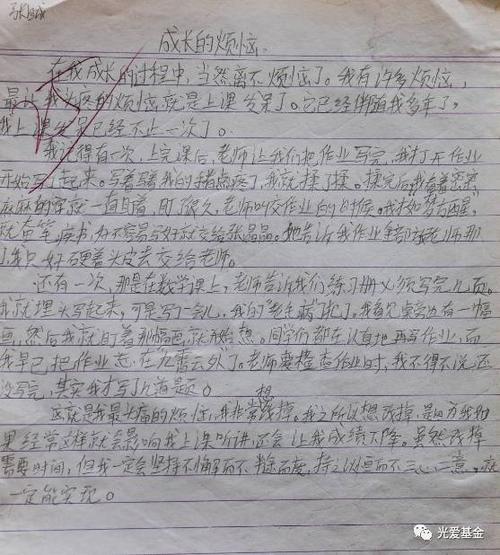 张
成长的烦恼
在我成长的过程中，当然离不烦恼了。我有许多烦恼，
最让我头疼的烦恼就是上课发呆了。它已经伴随我多年了，
我上课发呆已经不止一次了。
我记得有一次，上完课后，老师让我们把作业写完，我打开作业
开始写了起来。写着写着我的眼有点疼了，我就揉了揉。揉完后我看着密密
麻麻的字就一直盯着，盯了很久，老师叫交作业的时候。我才如梦方醒，
就奋笔疾书，好不容易写好就交给张晶晶。她告诉我作业全都在老师那
了我只好硬着头皮去交给老师。
还有一次，那是在数学课上，老师告诉我们练习册必须写完几页。
我就埋头写起来，可是写一会儿，我的“老毛病”犯了。我看见桌旁边有一幅
画，然后我就盯着那幅画就开始想。同学们都在认真地再写作业，而
我早已把作业忘在九霄云外了。老师要检查作业时，我不得不说还
没写完，其实我才写了几道题。
这就是我最头痛的烦恼，我非常想改掉。我之所以想改掉，是因为我如
果经常这样就会影响我上课听讲，还会让我成绩下降。虽然改掉
需要时间，但我一定会坚持不懈而不半途而废，持之以恒而不三心二意，就
一定能实现。
光爱基金